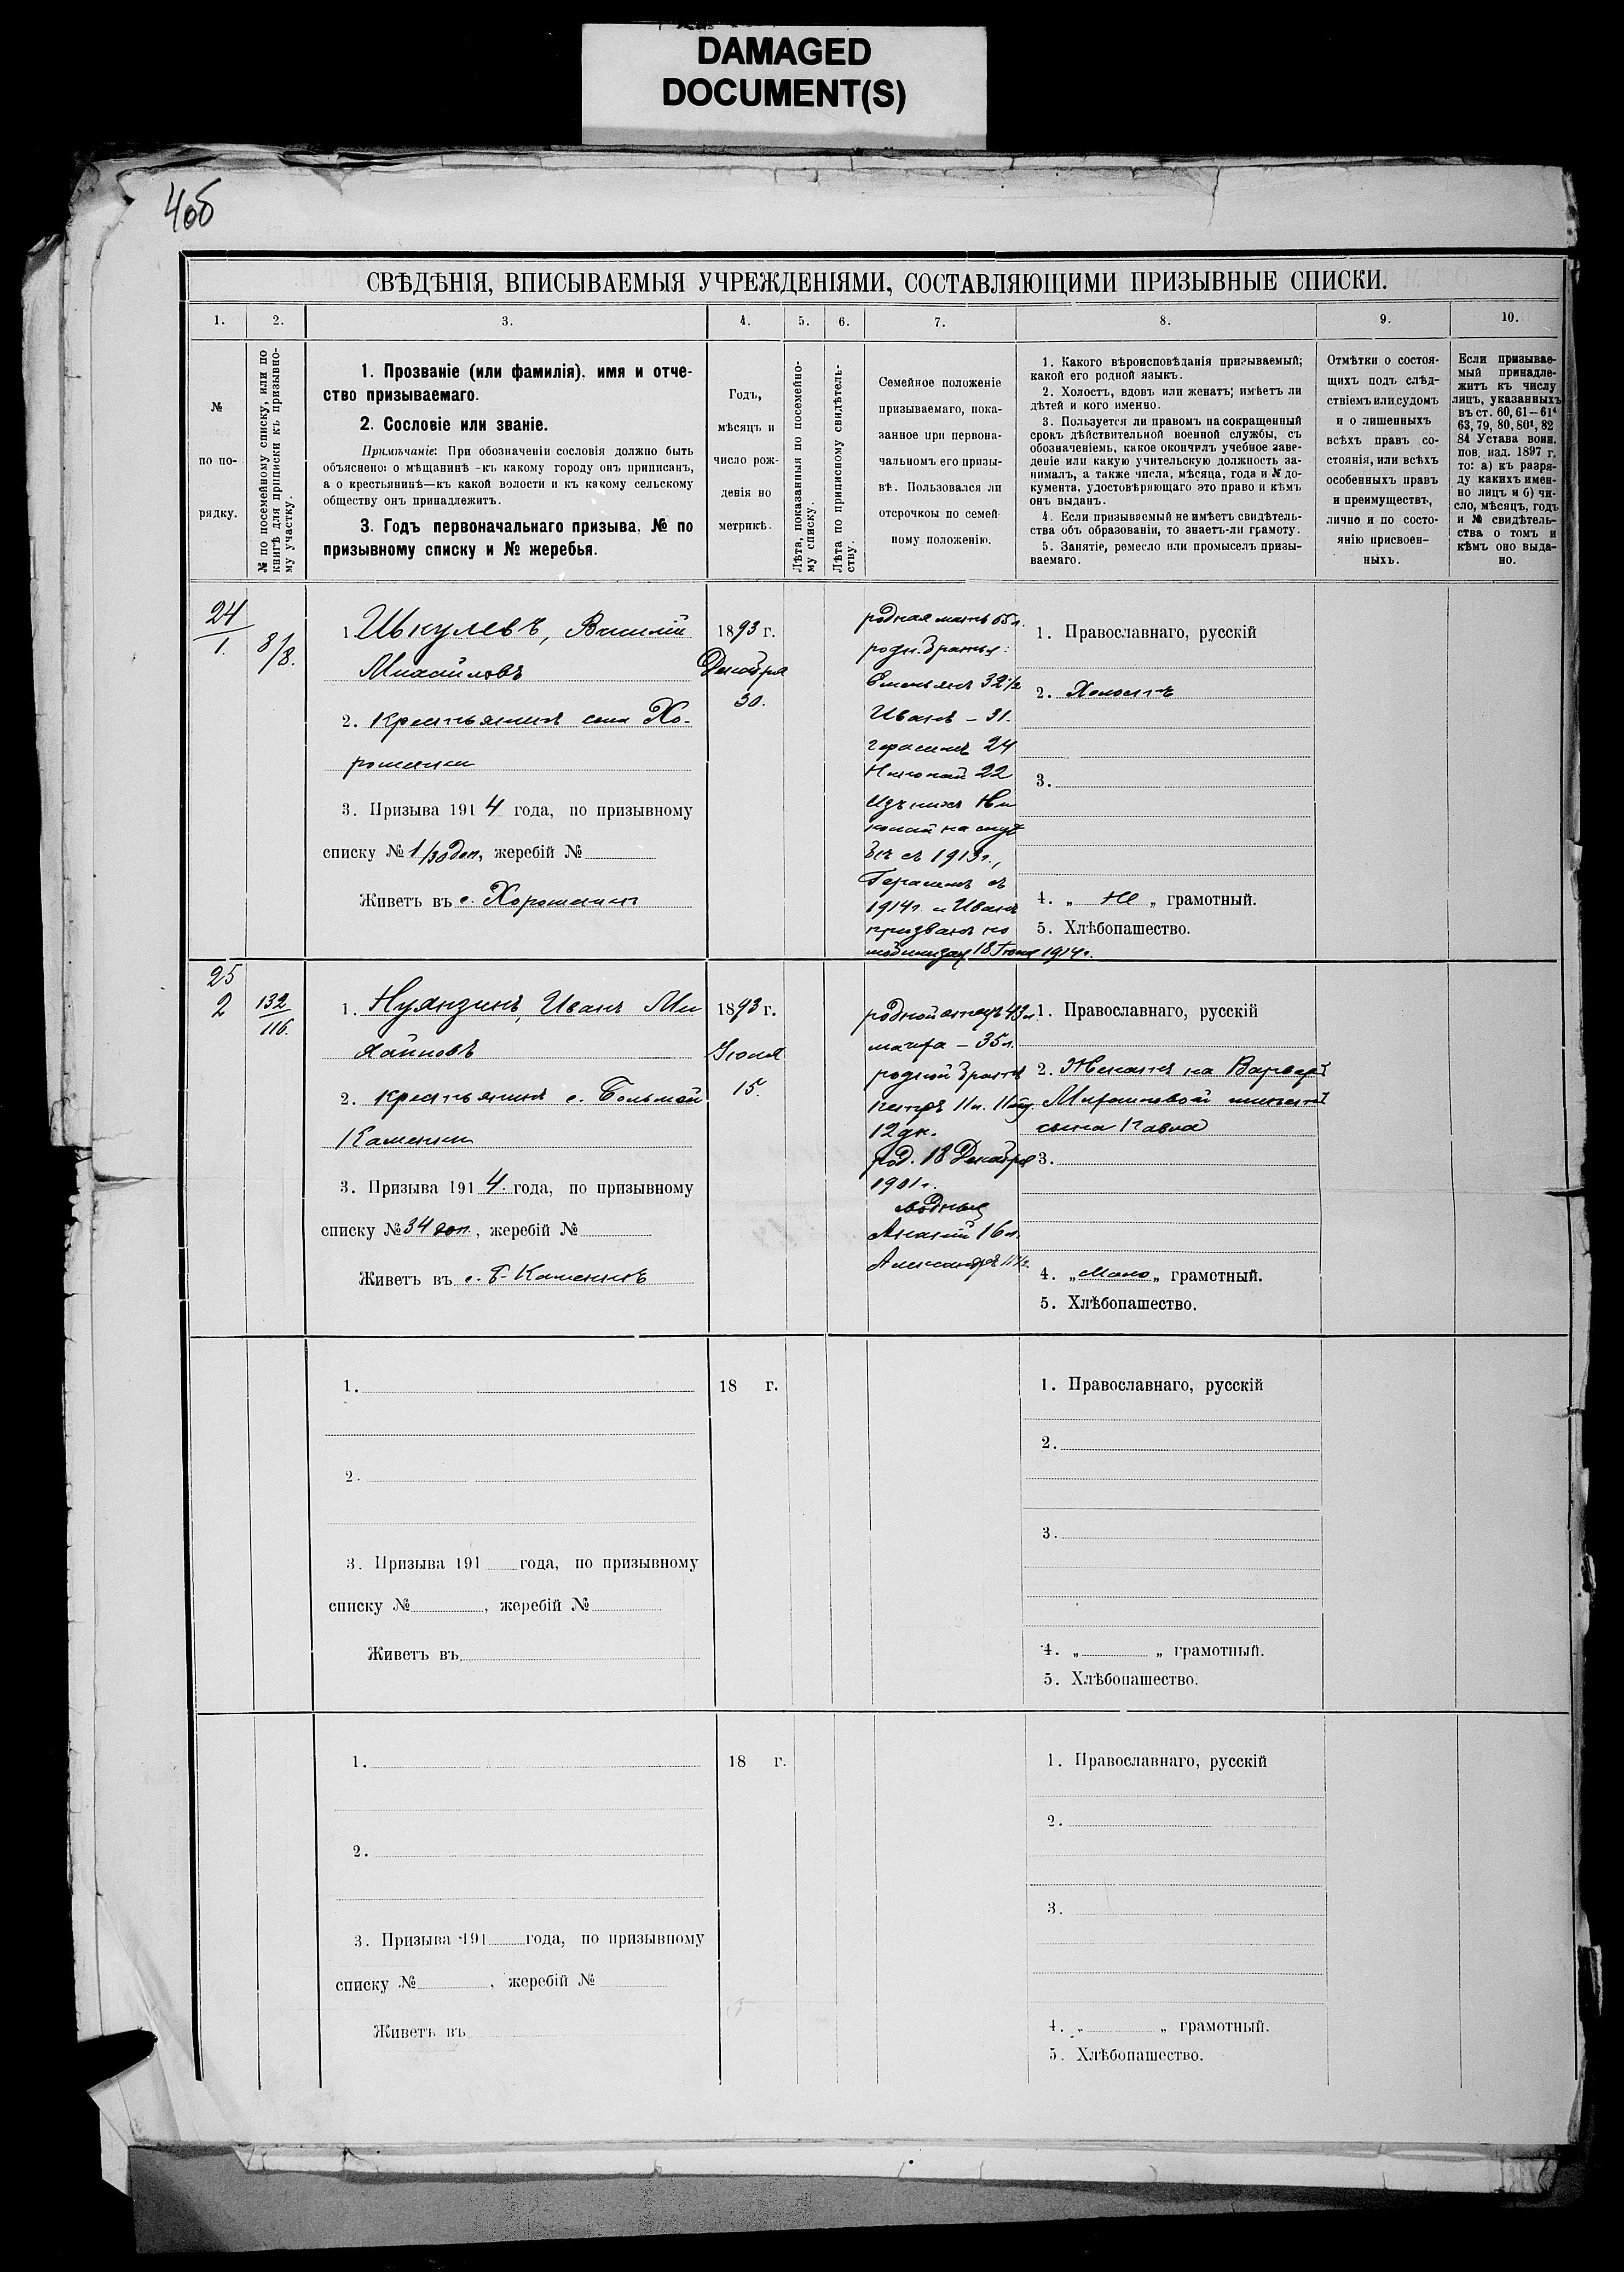 DAMAGED
DOCUMENT(S)
4об
СВѢДѢНІЯ, ВПИСЫВАЕМЫЯ УЧРЕЖДЕНІЯМИ, СОСТАВЛЯЮЩИМИ ПРИЗЫВНЫЕ СПИСКИ.
1. 2. 3. 4. 5. 6. 7. 8. 9. 10.
№
по по-
рядку.
№ по посемейному списку, или по
книгѣ для приписки къ призывно-
му участку.
1. Прозваніе (или фамилія), имя и отче-
ство призываемаго.
2. Сословіе или званіе.
Примѣчаніе: При обозначеніи сословія должно быть
объяснено: о мѣщанинѣ -къ какому городу онъ приписанъ,
а о крестьянинѣ—къ какой волости и къ какому сельскому
обществу онъ принадлежитъ.
3. Годъ первоначальнаго призыва, № по
призывному списку и № жеребья.
Годъ,
мѣсяцъ и
число рож-
денія по
метрикѣ.
Лѣта, показанныя по посемейно-
му списку.
Лѣта по приписному свидѣтель-
ству.
Семейное положеніе
призываемаго, пока-
занное при первона-
чальномъ его призы-
вѣ. Пользовался ли
отсрочкой по семей-
ному положенію.
1. Какого вѣроисповѣданія призываемый;
какой его родной языкъ.
2. Холостъ, вдовъ или женатъ; имѣетъ ли
дѣтей и кого именно.
3. Пользуется ли правомъ на сокращенный
срокъ дѣйствительной военной службы, съ
обозначеніемъ, какое окончилъ учебное заве-
деніе или какую учительскую должность за-
нималъ, а также числа, мѣсяца, года и № до-
кумента, удостовѣряющаго это право и кѣмъ
онъ выданъ.
4. Если призываемый не имѣетъ свидѣтель-
ства объ образованіи, то знаетъ-ли грамоту.
5. Занятіе, ремесло или промыселъ призы-
ваемаго.
Отмѣтки о состоя-
щихъ подъ слѣд-
ствіемъ или судомъ
и о лишенныхъ
всѣхъ правъ со-
стоянія, или всѣхъ
особенныхъ правъ
и преимуществъ,
лично и по состо-
янію присвоен-
ныхъ.
Если призывае-
мый принадле-
житъ къ числу
лицъ, указанныхъ
въ ст. 60, 61—61⁴
63, 79, 80, 80¹, 82
84 Устава воин.
пов. изд. 1897 г.
то: а) къ разря-
ду какихъ имен-
но лицъ и б) чи-
сло, мѣсяцъ, годъ
и № свидѣтель-
ства о томъ и
кѣмъ оно выда-
но.
24
1.
8/8.
1. Шкулевъ, Василій
Михайловъ
2. крестьянинъ села Хо-
рошенки
3. Призыва 1914 года, по призывному
списку № 1/30 доп, жеребій №
Живетъ въ с. Хорошенкѣ
1893 г.
Декабря
30.
родная мать 65 л.
родн. братья:
Емельянъ 32½
Иванъ – 31.
Герасимъ 24
Николай 22
Изъ нихъ Ни
колай на служ
бѣ съ 1913 г.,
Герасимъ съ
1914 г. и Иванъ
призванъ по
мобилизаціи 18 Іюля 1914 г.
1. Православнаго, русскій
2. Холостъ
3.
4. „ не „ грамотный.
5. Хлѣбопашество.
25
2
132
116.
1. Нуянзинъ, Иванъ Ми
хайловъ
2. крестьянинъ с. Большой
Каменки
3. Призыва 1914 года, по призывному
списку № 34 доп., жеребій №
Живетъ въ с. Б. Каменкѣ
1893 г.
Іюля
15.
родной отецъ 43 л.
мачиха – 35 л.
родной братъ
Петръ 11 л.
12 дн.
род. 18 Декабря
1901 г.
сводные
16 л.
Александръ 11½
1. Православнаго, русскій
2. Женатъ на Варварѣ
сына Павла
3.
4. „ Мало „ грамотный.
5. Хлѣбопашество.
1.
2.
3. Призыва 191 года, по призывному
списку № , жеребій №
Живетъ въ
18 г.
1. Православнаго, русскій
2.
3.
4. „ „ грамотный.
5. Хлѣбопашество.
1.
2.
3. Призыва 191 года, по призывному
списку № , жеребій №
Живетъ въ
18 г.
1. Православнаго, русскій
2.
3.
4. „ „ грамотный.
5. Хлѣбопашество.